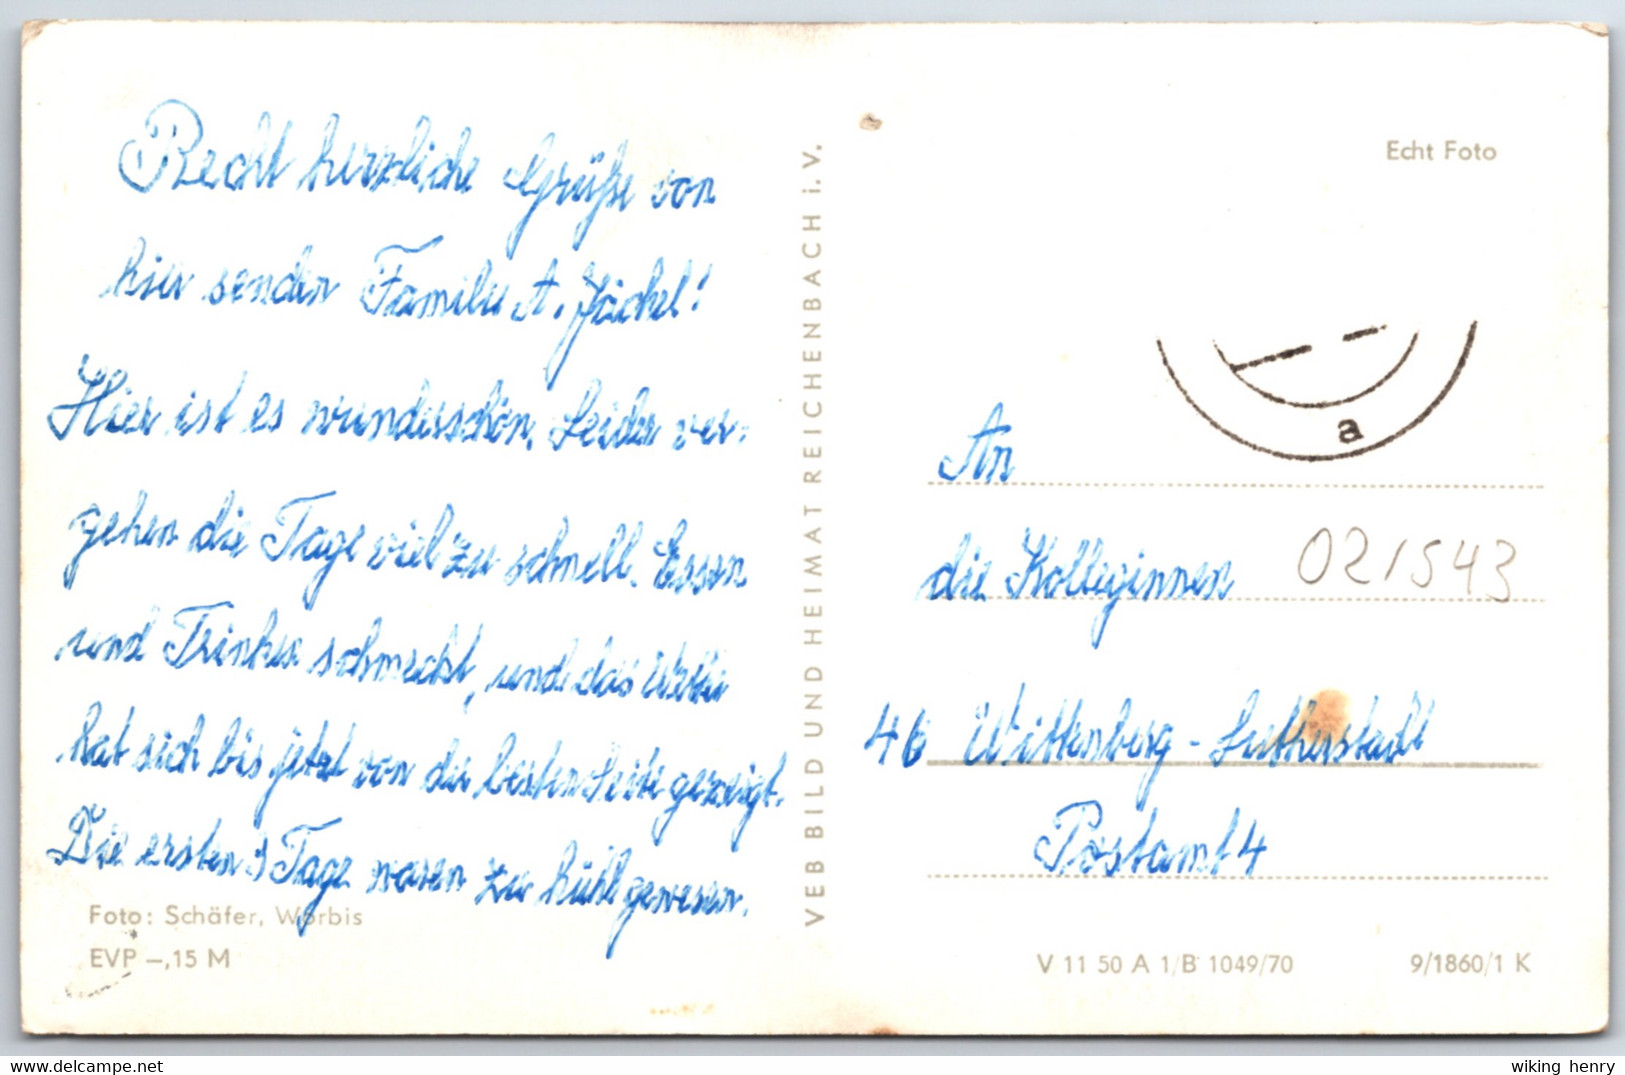 Recht herzliche Grüße von
hier senden Familie A. Jäckel!
Hier ist es wunderschön. Leider ver-
gehen die Tage viel zu schnell. Essen
und Trinken schmeckt, und das Wetter
hat sich bis jetzt von der besten Seite gezeigt.
Die ersten 3 Tage waren zu kühl gewesen.
Foto: Schäfer, Worbis
EVP –,15 M
VEB BILD UND HEIMAT REICHENBACH i. V.
Echt Foto
a
An
die Kolleginnen
021543
46 Wittenberg - Lutherstadt
Postamt 4
V 11 50 A 1/B 1049/70 9/1860/1 K
wiking henry